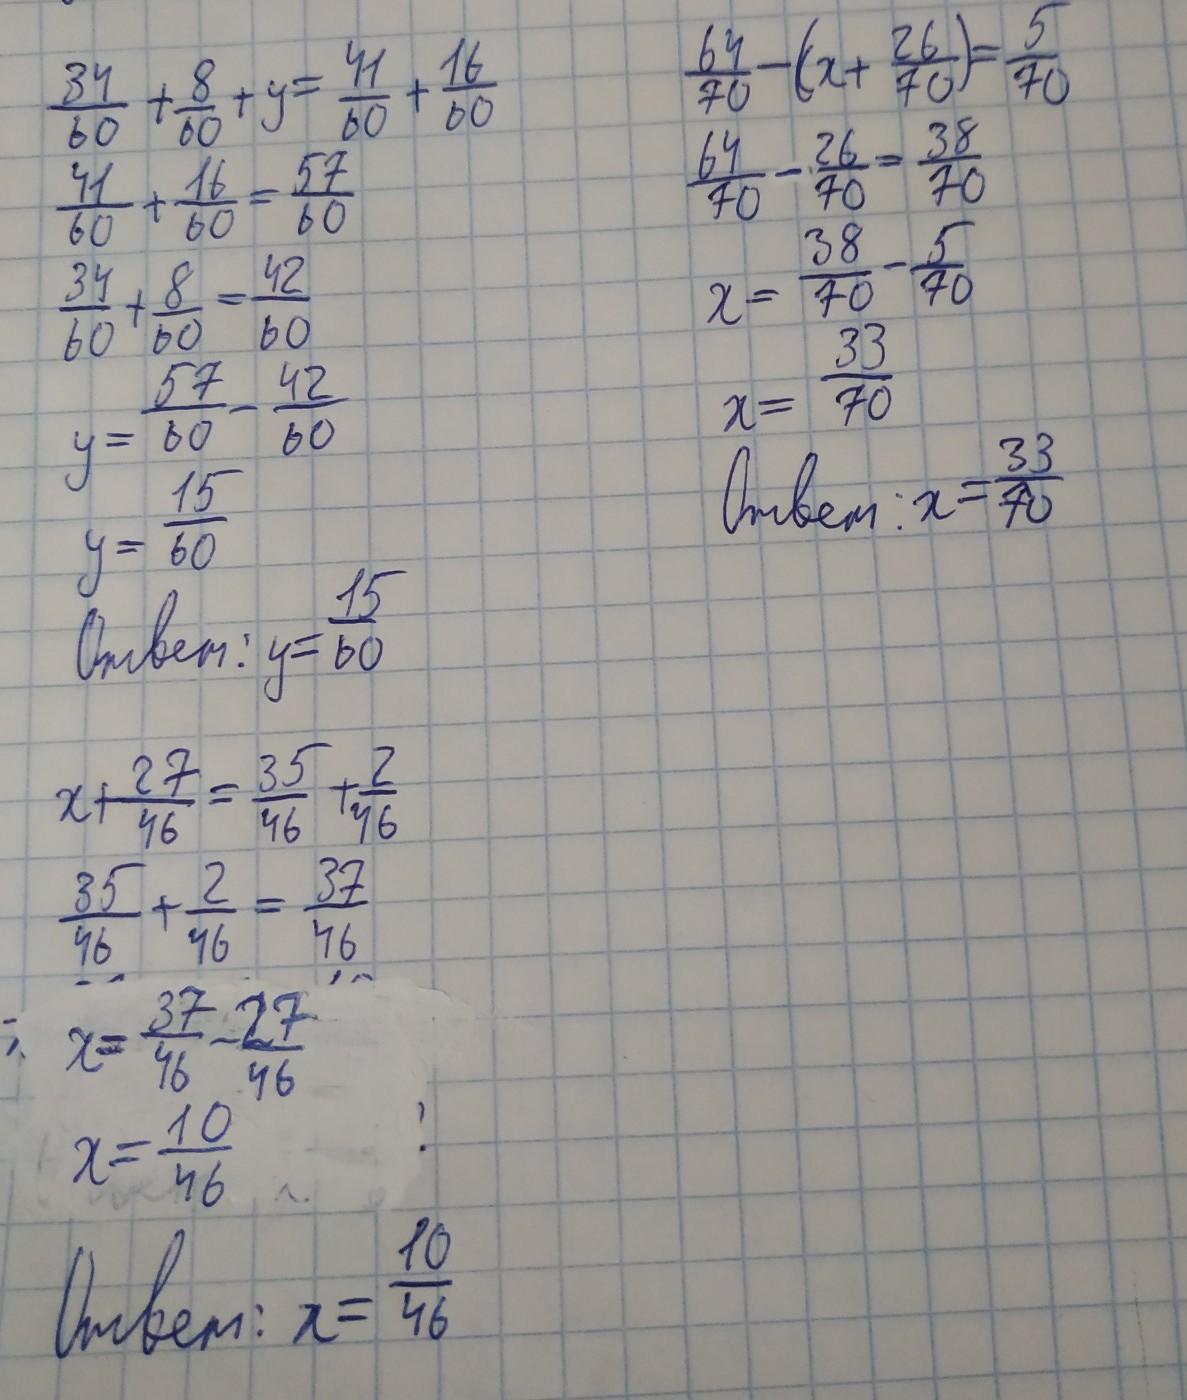 34/60 + 8/60 + y = 41/60 + 16/60
41/60 + 16/60 = 57/60
34/60 + 8/60 = 42/60
y = 57/60 - 42/60
y = 15/60
Ответ: y = 15/60
x + 27/46 = 35/46 + 2/46
35/46 + 2/46 = 37/46
x = 37/46 - 27/46
x = 10/46
Ответ: x = 10/46
64/70 - (x + 26/70) = 5/70
64/70 - 26/70 = 38/70
x = 38/70 - 5/70
x = 33/70
Ответ: x = 33/70